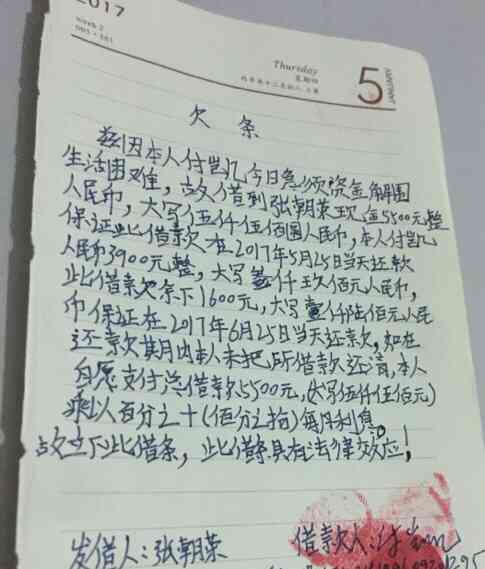 2017
Week 2
005 - 361
Thursday
星期四
5
JANUARY
欠条
兹因本人付凯亿今日急须资金解围
生活困难,故借到张朝荣现金5500元整
人民币,大写伍仟伍佰圆人民币,本人付凯亿
保证此借款在2017年5月25日当天还款
人民币3900元整,大写叁仟玖佰元人民币,
此借款欠余下1600元,大写壹仟陆佰元人民
币保证在2017年6月25日当天还款,如在
还款其月内本人未把所借款还清,本人
自愿支付总借款5500元,(大写伍仟伍佰元)
乘以百分之十(佰分之拾)每月利息
故立下此借条,此借条具有法律效应!
发借人:张朝荣
借款人: